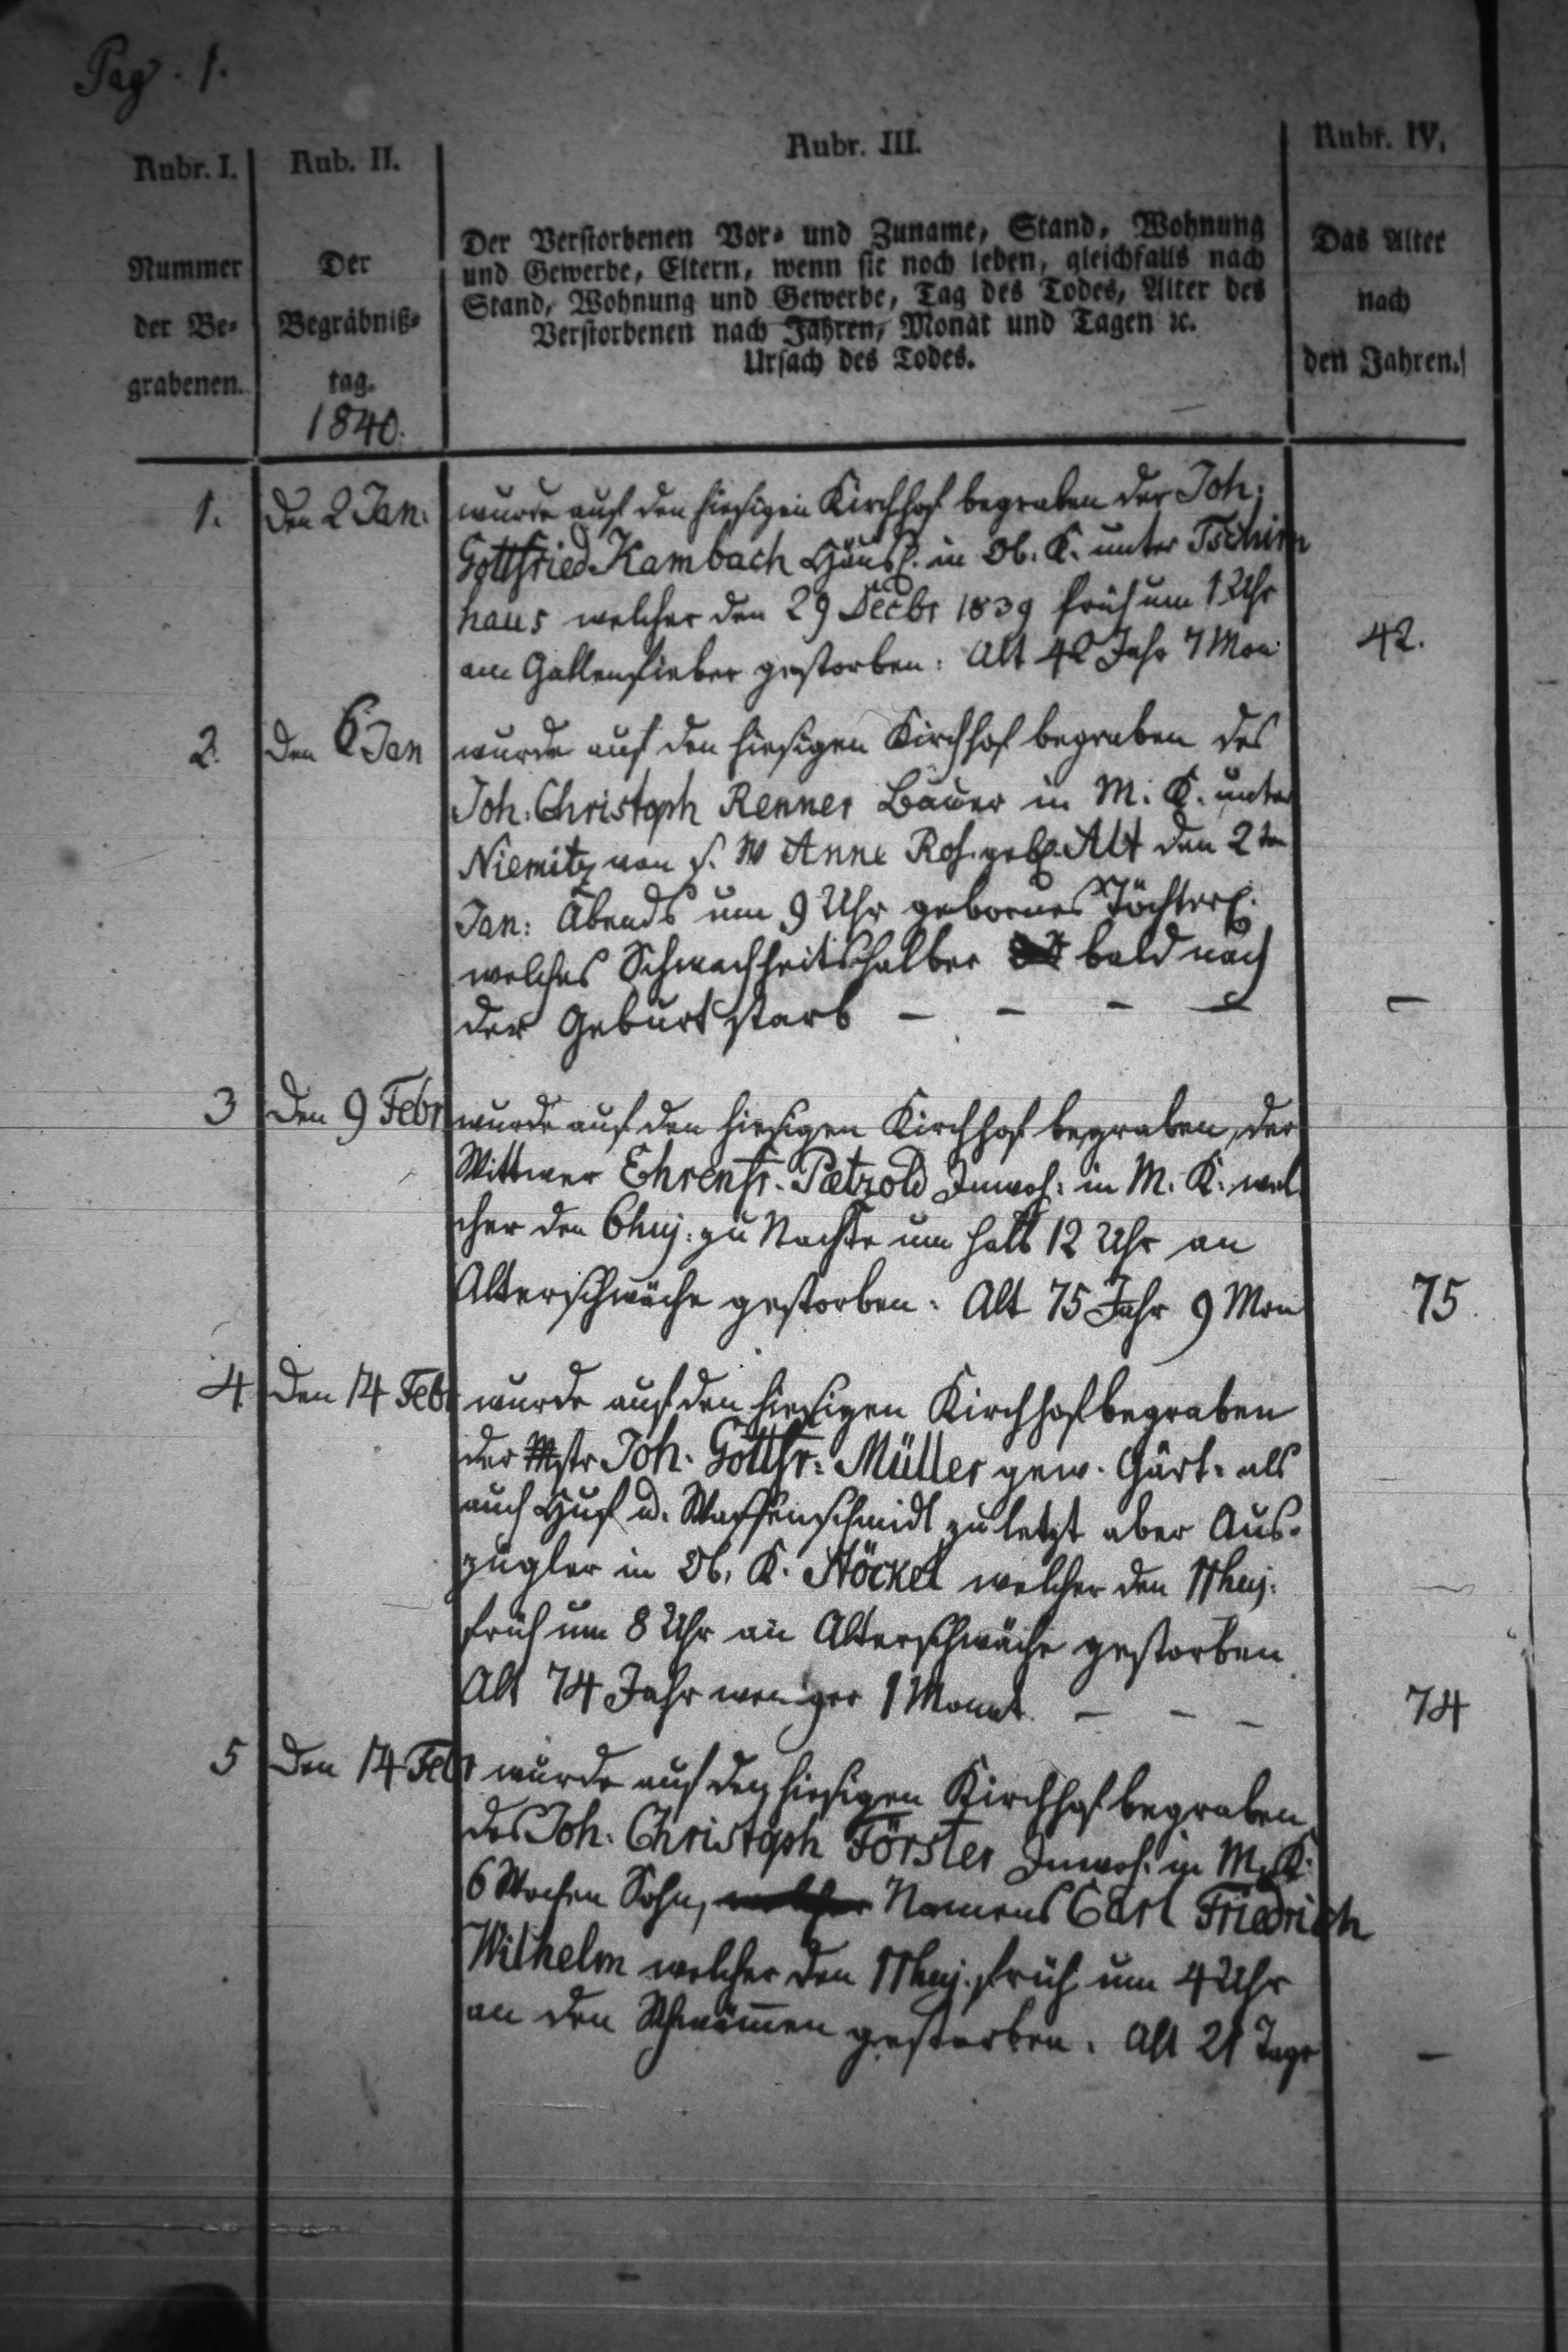 Pag. 1.
Rubr. I. Rub. II. Rubr. III. Rubr. IV.
Nummer
der Be-
grabenen.
Der
Begräbniß-
tag.
1840.
Der Verstorbenen Vor- und Zuname, Stand, Wohnung
und Gewerbe, Eltern, wenn sie noch leben, gleichfalls nach
Stand, Wohnung und Gewerbe, Tag des Todes, Alter des
Verstorbenen nach Jahren, Monat und Tagen ꝛc.
Ursach des Todes.
Das Alter
nach
den Jahren.
1. Den 2 Jan. wurde auf den hiesigen Kirchhof begraben der Joh.
Gottfried Kambach Häusl. in Ob. K. unter Tschirn
haus welcher den 29 Decbr 1839 früh um 1 Uhr
am Gallenfieber gestorben. Alt 42 Jahr 7 Mon 42.
2. Den 6 Jan wurde auf den hiesigen Kirchhof begraben des
Joh. Christoph Renner Bauer in M. K. unter
Niemitz von s. W Anne Ros. geb. Alt den 2ten
Jan. Abends um 9 Uhr gebornes Töchterl.
welches Schwachheitshalber bald nach
der Geburt starb – – – – –
3 Den 9 Febr wurde auf den hiesigen Kirchhof begraben, der
Wittwer Ehrenfr. Petzold Inwoh. in M. K. wel
cher den 6 huj. zu Nachte um halb 12 Uhr an
Alterschwäche gestorben. Alt 75 Jahr 9 Mon 75.
4 Den 14 Febr wurde auf den hiesigen Kirchhof begraben
der Mstr Joh. Gottfr. Müller gew. Gärt. als
auch Huf u. Waffenschmidt zuletzt aber Aus-
zügler in Ob. K. Nöckel welcher den 11 huj.
früh um 8 Uhr an Alterschwäche gestorben
Alt 74 Jahr weniger 1 Monat. – – – 74
5 Den 14 Febr wurde auf den hiesigen Kirchhof begraben
des Joh. Christoph Förster Inwoh. in M. K.
6 Wochen Sohn, welcher Namens Carl Friedrich
Wilhelm welcher den 11 huj. früh um 4 Uhr
an den Schwämmen gestorben. Alt 21 Tage –